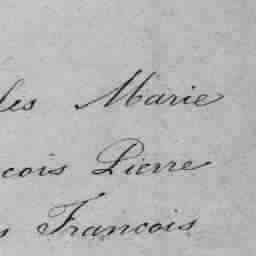 les Marie
cois Pierre
s Francois